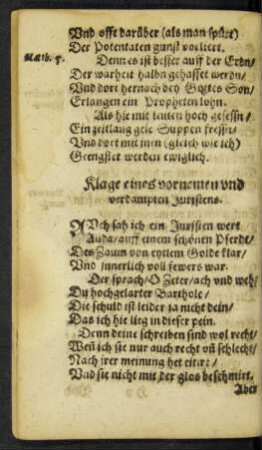 Vnd offt darüber (als man spürt)
Der Potentaten gunst verliert.
Matth. 5.
Denn es ist besser auff der Erdn/
Der warheit halbn gehasset werdn/
Vnd dort hernach bey Gottes Son/
Erlangen ein Propheten lohn.
Als hie mit leuten hoch gesessn/
Ein zeitlang gute Suppen fressn/
Vnd dort mit jnen (gleich wie ich)
Geengstet werden ewiglich.
Klage eines vornemen vnd
verdampten Juristens.
Vch sah ich ein Juristen wert
Alda/ auff einem schönen Pferdt/
Des Zaum von eytlem Golde klar/
Vnd jnnerlich voll fewers war.
Der sprach/ O Zeter/ ach vnd weh/
Du hochgelarter Barthole/
Die schuld ist leider ja nicht dein/
Das ich hie lieg in dieser pein.
Denn deine schreiben sind wol recht/
Weñ ich sie nur auch recht vñ schlecht/
Nach jrer meinung het citirt/
Vnd sie nicht mit der glos beschmirt.
Aber